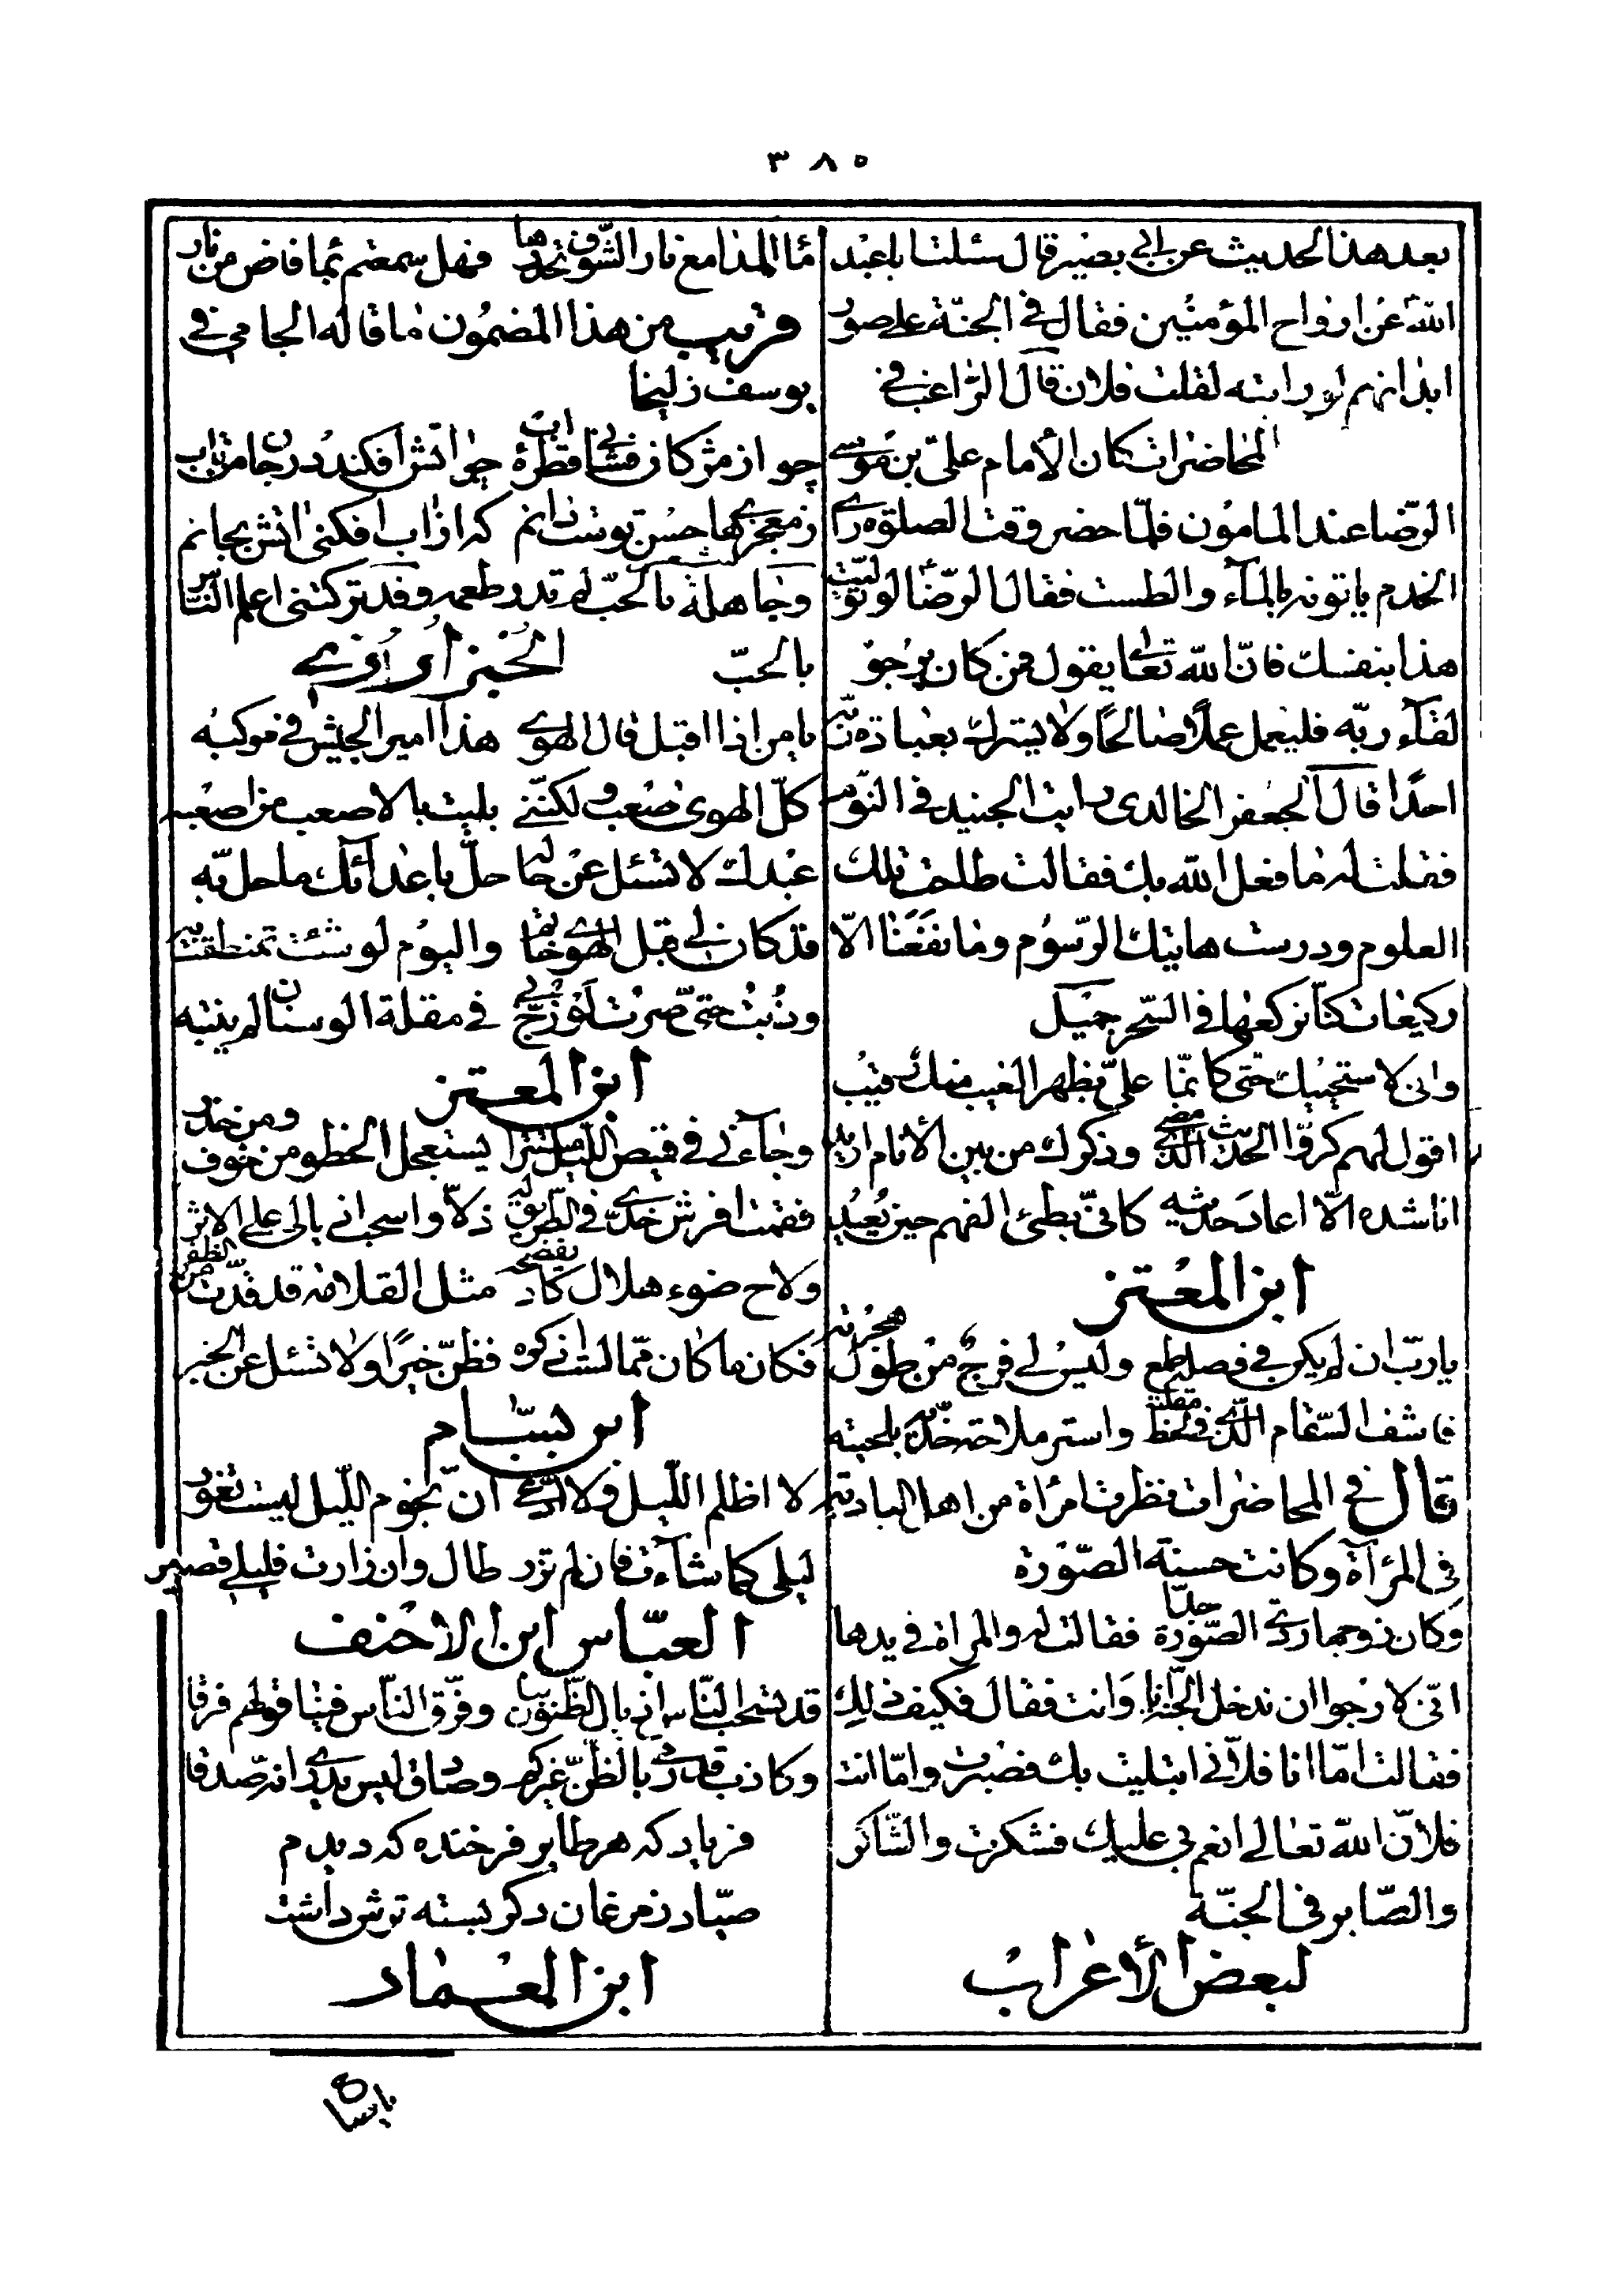 ٣٨٥
بعد هذا الحديث عن ابى بصير قال سئلت ابا عبد
الله عن ارواح المؤمنين فقال فى الجنة على صور
ابدانهم لو رايته لقلت فلان قال الراغب فى
المحاضرات كان الأمام علىّ بن موسى
الرضا عند المامون فلمّا حضر وقت الصلوة راى
الخدم ياتونه بالمآء والطست فقال الرضا لو توليت
هذا بنفسك فانّ الله تعالى يقول فمن كان يرجو
لقآء ربّه فليعمل عملًا صالحًا ولا يشرك بعبادة ربّه
احدًا قال الجعفر الخالدى رايت الجنيد فى النوم
فقلت له ما فعل الله بك فقال طاحت تلك
العلوم ودرست هاتيك الرسوم وما نفعنا الّا
ركيعات كنّا نركعها فى السّحر جميل
وانى لاستحييك حتى كانّما علىّ بظهر الغيب منك رقيب
اقول لهم كرّوا الحديث الذى مضى وذكرك من بين الأنام اريد
اناشده الّا اعاد حديثه كانّى بطئ الفهم حين يعيد
ابن المعتز
يا ربّ ان لم يكن فى وصله طمع وليس لى فرج من طول هجرته
فاشف السّقام الذى فى لحظ مقلته واستر ملاحة خدّيه بلحيته
قال فى المحاضرات نظرت امرأة من اهل البادية
فى المرآة وكانت حسنة الصّورة
وكان زوجها ردىّ الصّورة جدّا فقالت له والمراة فى يدها
انّى لارجوا ان ندخل الجنّة انا وانت فقال فكيف ذلك
فقالت امّا انا فلانّى ابتليت بك فصبرت وامّا انت
فلانّ الله تعالى انعم بى عليك فشكرت والشّاكر
والصّابر فى الجنّة
لبعض الأعراب
مّا المذامع نار الشّوق تحدرها فهل سمعتم بما فاض من نار
قريب من هذا المضمون ما قاله الجامى فى
يوسف زليخا
چو از مژگان فشانى قطرهٔ آب چو آتش افكند در جان من تاب
ز معجزهاى حسن توست دانم كه از آب افكنى آتش بجانم
وجاهلة بالحبّ لم تدر طعمه وقد تركتنى اعلم النّاس
بالحبّ الخبز أرزى
يا من اذا اقبل قال الهوى هذا امير الجيش فى موكبه
كلّ الهوى صعب ولكنّنى بليت بالاصعب من اصعبه
عبدك لا تسئل عن حاله حلّ باعدائك ما حلّ به
قد كان لى قبل الهوى خاتم واليوم لو شئت تمنطقت به
وذبت حتى صرت لو زجّ بى فى مقلة الوسنان لم ينتبه
ابن المعتز
وجاءنى فى قميص اللّيل مستترا يستعجل الخطو من خوف ومن حذر
فقمت افرش خدّى فى الطّريق له ذلّا واسحب اذيالى على الاثر
ولاح ضوء هلال كاد يفضحه مثل القلامة قد قدّت من الظّفر
فكان ما كان ممّا لست اذكره فظنّ خيرًا ولا تسئل عن الخبر
ابن بسّام
لا اظلم اللّيل ولا ادّعى انّ نجوم اللّيل ليست تغور
ليلى كما شاءت فان لم تزر طال وان زارت فليلى قصير
العبّاس ابن الاحنف
قد سحب النّاس اذيال الظّنون بنا وفرّق النّاس فينا قولهم فرقا
وكاذب قد رمى بالظّنّ غيركم وصادق ليس يدرى انّه صدقا
فرياد كه هر طاير فرخنده كه ديدم
صيّاد ز مرغان دگر بسته ترش داشت
ابن العماد